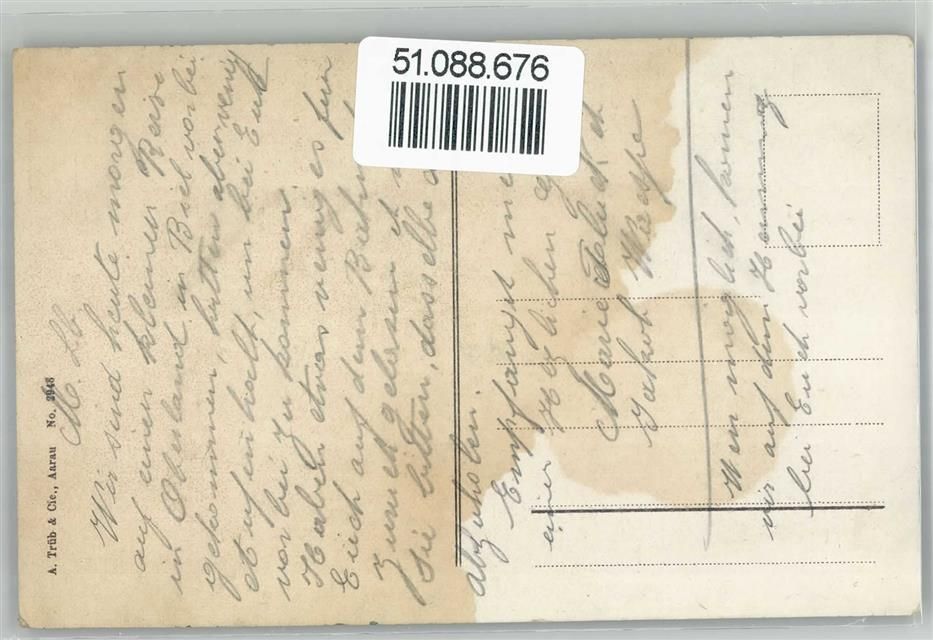 51.088.676
A. Trüb & Cie., Aarau No. 2948
M. Lb.
Wir sind heute morgen
auf einer kleinen Reise
in Oberland in Biel vorbei
gekommen, hatten aber wenig
Aufenthalt, um bei Euch
vorbei zu kommen.
Haben etwas weniges für
Euch auf dem Bahnh
zurückgelassen u
Sie bitten, dasselbe
abzuholen.
Empfangt
einer Herzlichen
Marie
Jakob Wäespe
Wen möglich, kommen
wir auf dem
bei Euch vorbei